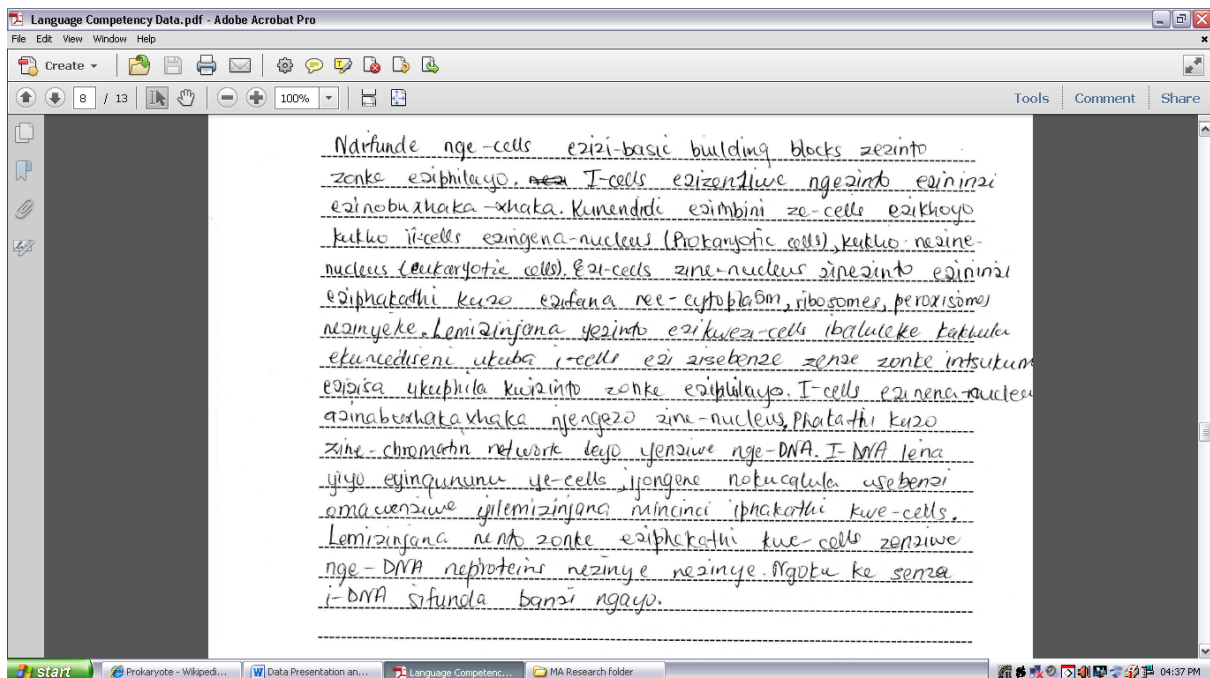 Language Competency Data.pdf - Adobe Acrobat Pro
File Edit View Window Help
Create
8 / 13 100% Tools Comment Share
Ndifunde nge-cells ezizi-basic building blocks zezinto
zonke eziphilayo. I-cells ezizenziwe ngezinto ezininzi
ezinobuxhaka-xhaka. Kunendidi ezimbini ze-cells ezikhoyo
kukho ii-cells ezingena-nucleus (Prokaryotic cells), kukho nezine-
nucleus (eukaryotic cells). Ezi-cells zine-nucleus zinezinto ezininzi
eziphakathi kuzo ezifana nee-cytoplasm, ribosomes, peroxisomes
nezinyeke. Lemizinjana yezinto ezikwezi-cells ibaluleke kakhulu
ekuncediseni ukuba i-cells ezi zisebenze zenze zonke intsukum
ezizisa ukuphila kwizinto zonke eziphilayo. I-cells ezinena-nucleu
azinabuxhakaxhaka njengezo zine-nucleus. Phakathi kuzo
zine-chromatin network leyo yenziwe nge-DNA. I-DNA lena
yiyo eyinqununu ye-cells, ijongene nokucalula usebenzi
omawenziwe yilemizinjana mincinci iphakathi kwe-cells.
Lemizinjana nento zonke eziphakathi kwe-cells zenziwe
nge-DNA neproteins nezinye nezinye. Ngoku ke senza
i-DNA sifunda banzi ngayo.
start Prokaryote - Wikipedi... Data Presentation an... Language Competenc... MA Research folder 04:37 PM